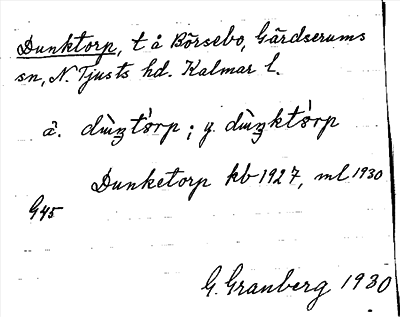 Dunktorp, t å Börsebo, Gärdserums
sn, N. Tjusts hd. Kalmar l.
ä. dùŋtórp; y. dùŋktórp
Dunketorp kb 1927, ml 1930
G45
G. Granberg 1930